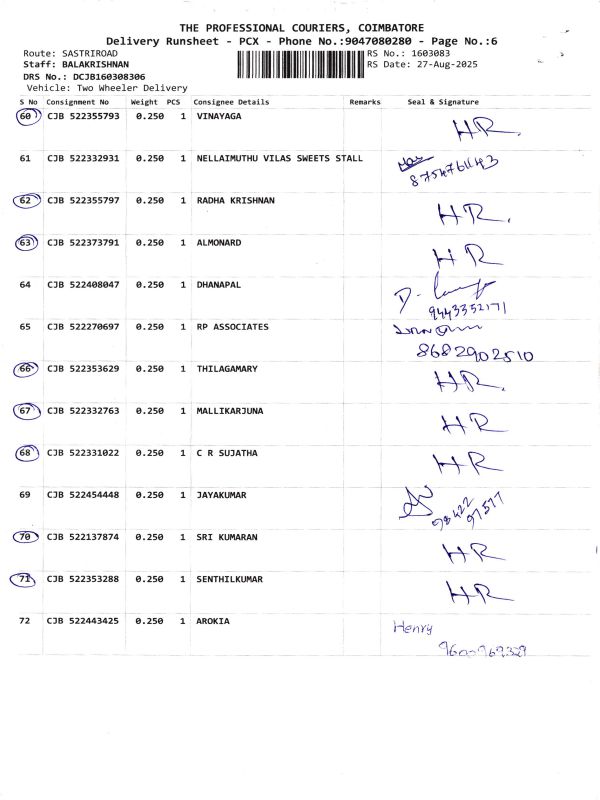 THE PROFESSIONAL COURIERS, COIMBATORE
Delivery Runsheet - PCX - Phone No.:9047080280 - Page No.:6
Route: SASTRIROAD RS No.: 1603083
Staff: BALAKRISHNAN RS Date: 27-Aug-2025
DRS No.: DCJB160308306
Vehicle: Two Wheeler Delivery
S No Consignment No Weight PCS Consignee Details Remarks Seal & Signature
60 CJB 522355793 0.250 1 VINAYAGA HR.
61 CJB 522332931 0.250 1 NELLAIMUTHU VILAS SWEETS STALL
62 CJB 522355797 0.250 1 RADHA KRISHNAN HR.
63 CJB 522373791 0.250 1 ALMONARD HR
64 CJB 522408047 0.250 1 DHANAPAL
9443352171
65 CJB 522270697 0.250 1 RP ASSOCIATES
8682902510
66 CJB 522353629 0.250 1 THILAGAMARY HR.
67 CJB 522332763 0.250 1 MALLIKARJUNA HR
68 CJB 522331022 0.250 1 C R SUJATHA HR
69 CJB 522454448 0.250 1 JAYAKUMAR
98422
97577
70 CJB 522137874 0.250 1 SRI KUMARAN HR
71 CJB 522353288 0.250 1 SENTHILKUMAR HR
72 CJB 522443425 0.250 1 AROKIA Henry